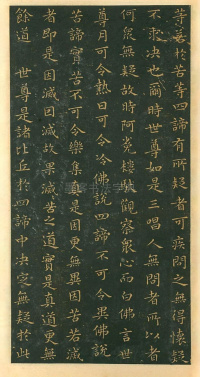 等若於苦等四諦有所疑者可疾問之無得懷疑
不求決也爾時世尊如是三唱人無問者所以者
何眾無疑故時阿㝹樓馱觀察眾心而白佛言世
尊月可令熱日可令冷佛說四諦不可令異佛說
苦諦實苦不可令樂集真是因更無異因苦若滅
者即是因滅因滅故果滅苦之道實是真道更無
餘道 世尊是諸比丘於四諦中決定無疑於此